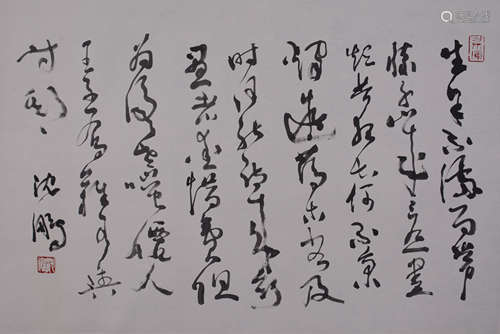 生年不滿百常
懷千歲憂晝
短苦夜長何不秉
燭遊為樂當及
時何能待來茲
愚者愛惜費但
為後世嗤僊人
王子喬難可與
等期
沈鵬